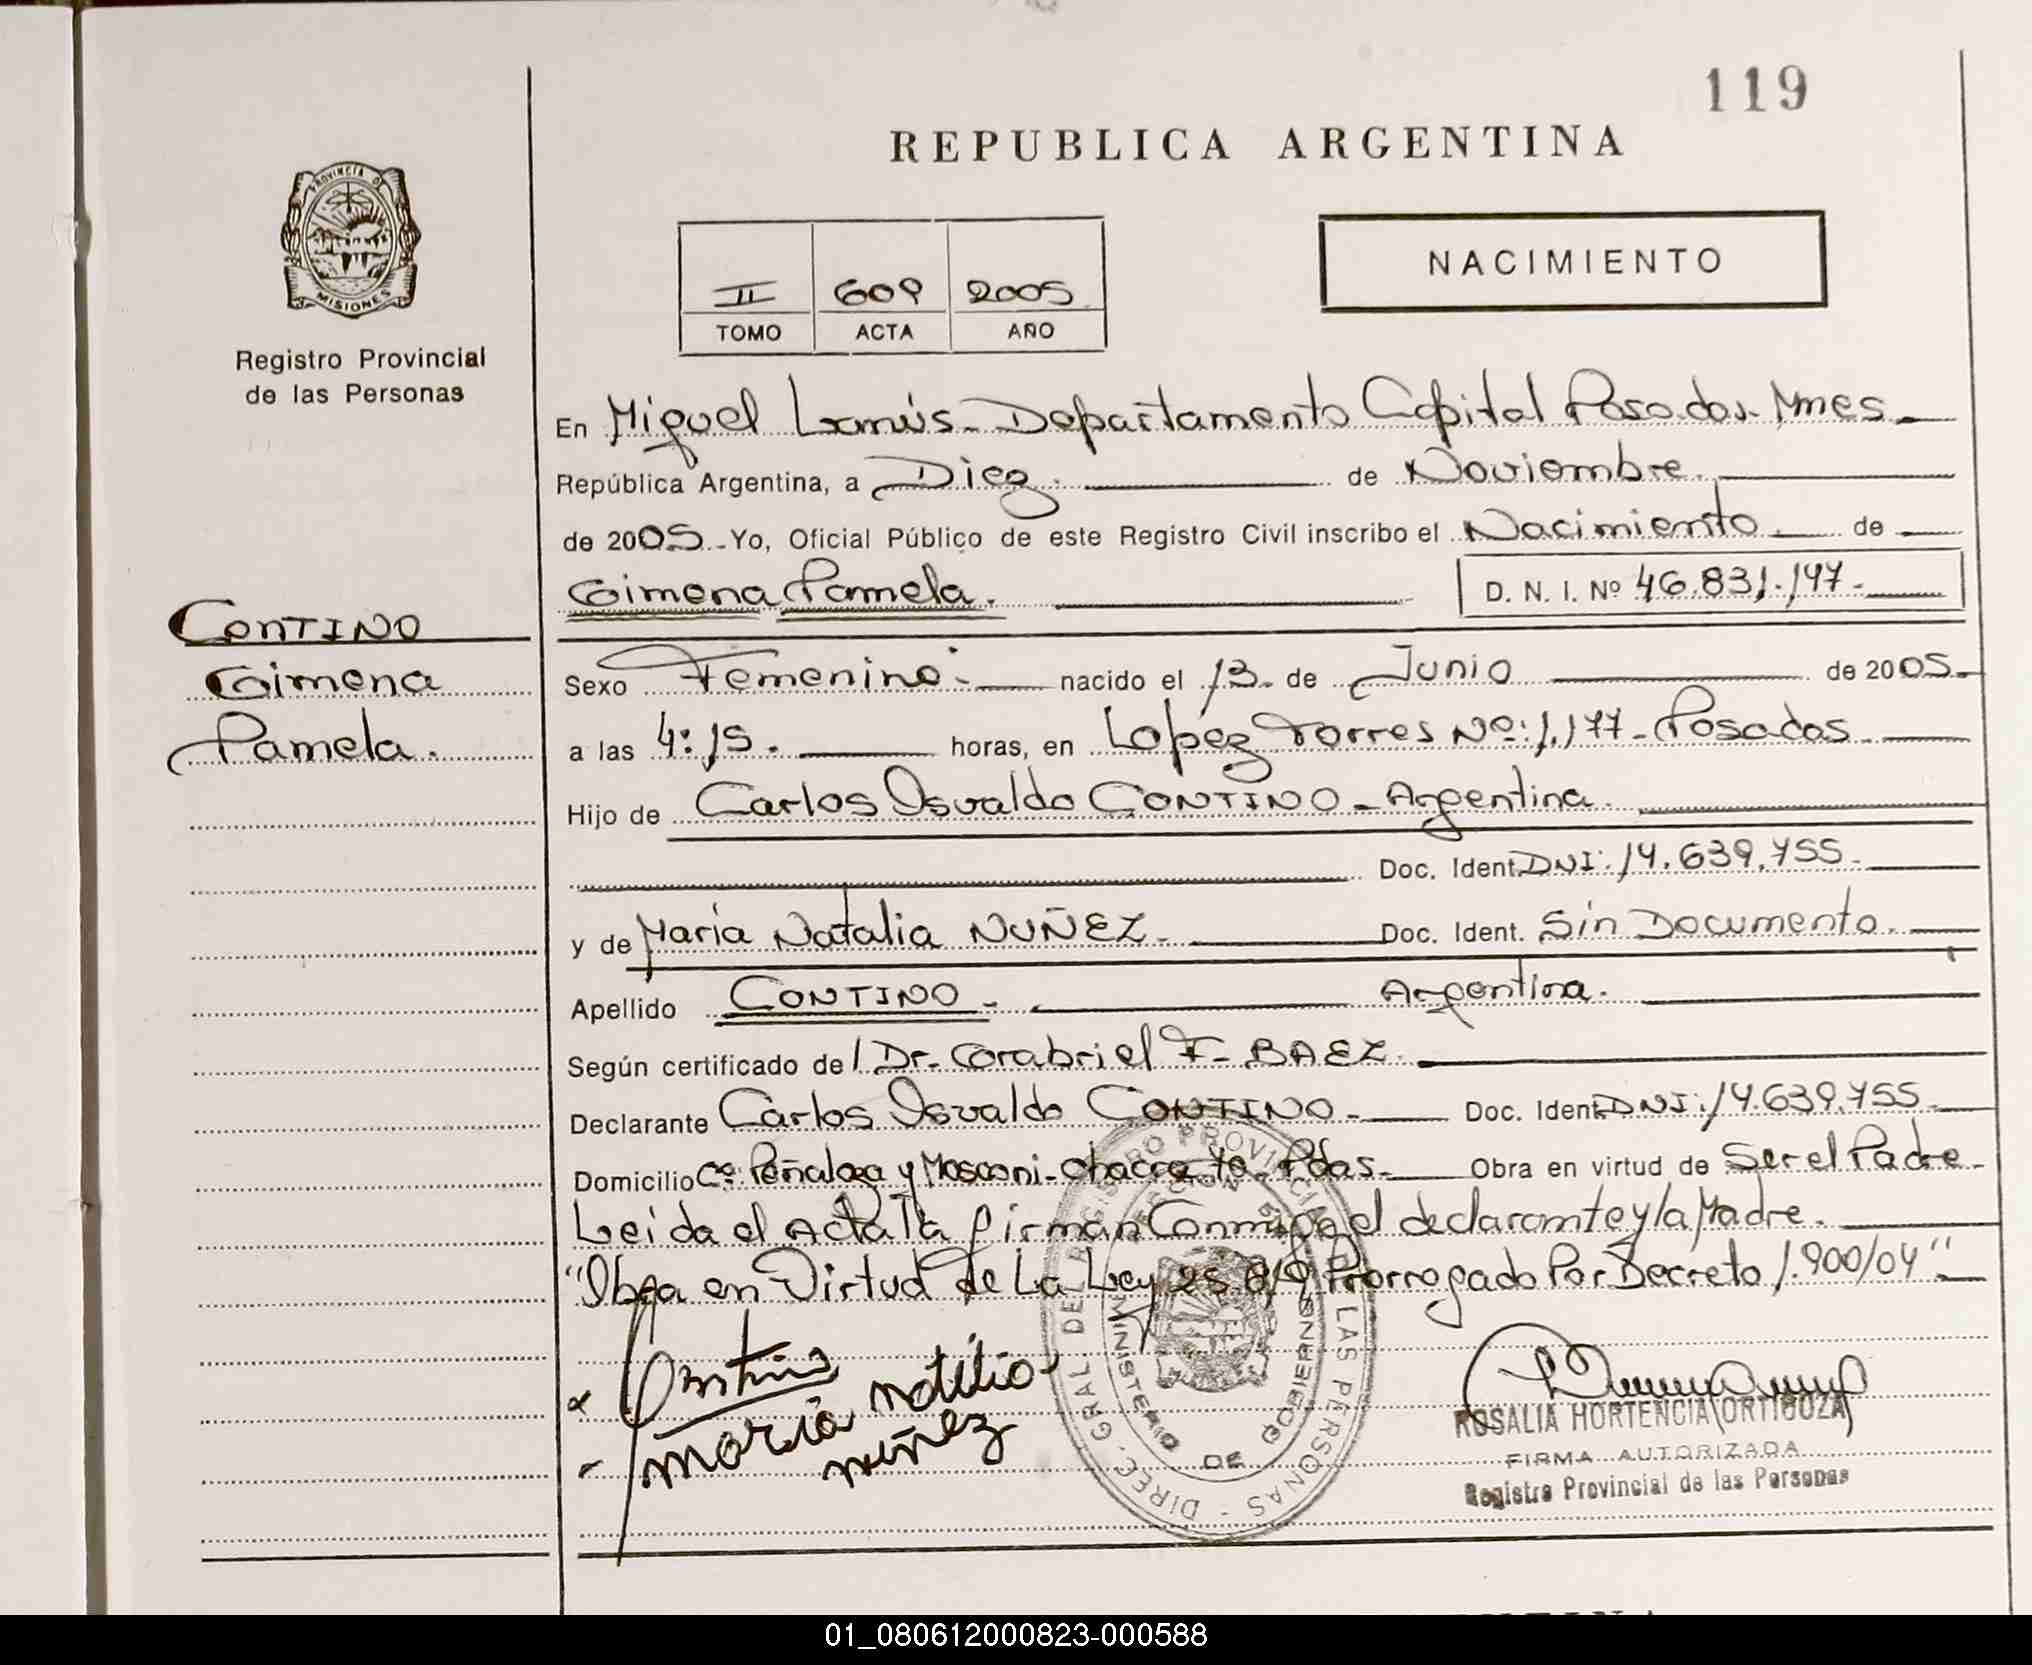 119
REPUBLICA ARGENTINA
PROVINCIA DE
MISIONES
Registro Provincial
de las Personas
NACIMIENTO
II 609 2005
TOMO ACTA AÑO
En Miguel Lanús - Departamento Capital Posadas - Mnes -
República Argentina, a Diez. de Noviembre.
de 2005 - Yo, Oficial Público de este Registro Civil inscribo el Nacimiento de
Gimena Pamela. D. N. I. Nº 46.831.147-
CONTINO
Gimena
Pamela.
Sexo Femenino - nacido el 13 - de Junio de 2005 -
a las 4:15. horas, en Lopez Torres Nº: 1.177 - Posadas
Hijo de Carlos Osvaldo CONTINO - Argentina.
Doc. Ident. DNI: 14.639.755-
y de María Natalia NUÑEZ - Doc. Ident. Sin Documento.
Apellido CONTINO - Argentina.
Según certificado de / Dr. Gabriel F. BAEZ.
Declarante Carlos Osvaldo CONTINO - Doc. Ident. DNI: 14.639.755-
Domicilio Peñaloza y Mosconi - chacra - Pdas - Obra en virtud de Ser el Padre -
Leida el Acta la firman Conmigo el declarante y la Madre.
"Obra en Virtud de La Ley 25.819 Prorrogado Por Decreto 1.900/04" -
Contino
maria natilia
nuñez
DIREC. GRAL DEL REGISTRO PROVINCIAL DE LAS PERSONAS -
MINISTERIO DE GOBIERNO
ROSALIA HORTENCIA ORTIGOZA
FIRMA AUTORIZADA
Registro Provincial de las Personas
01_080612000823-000588